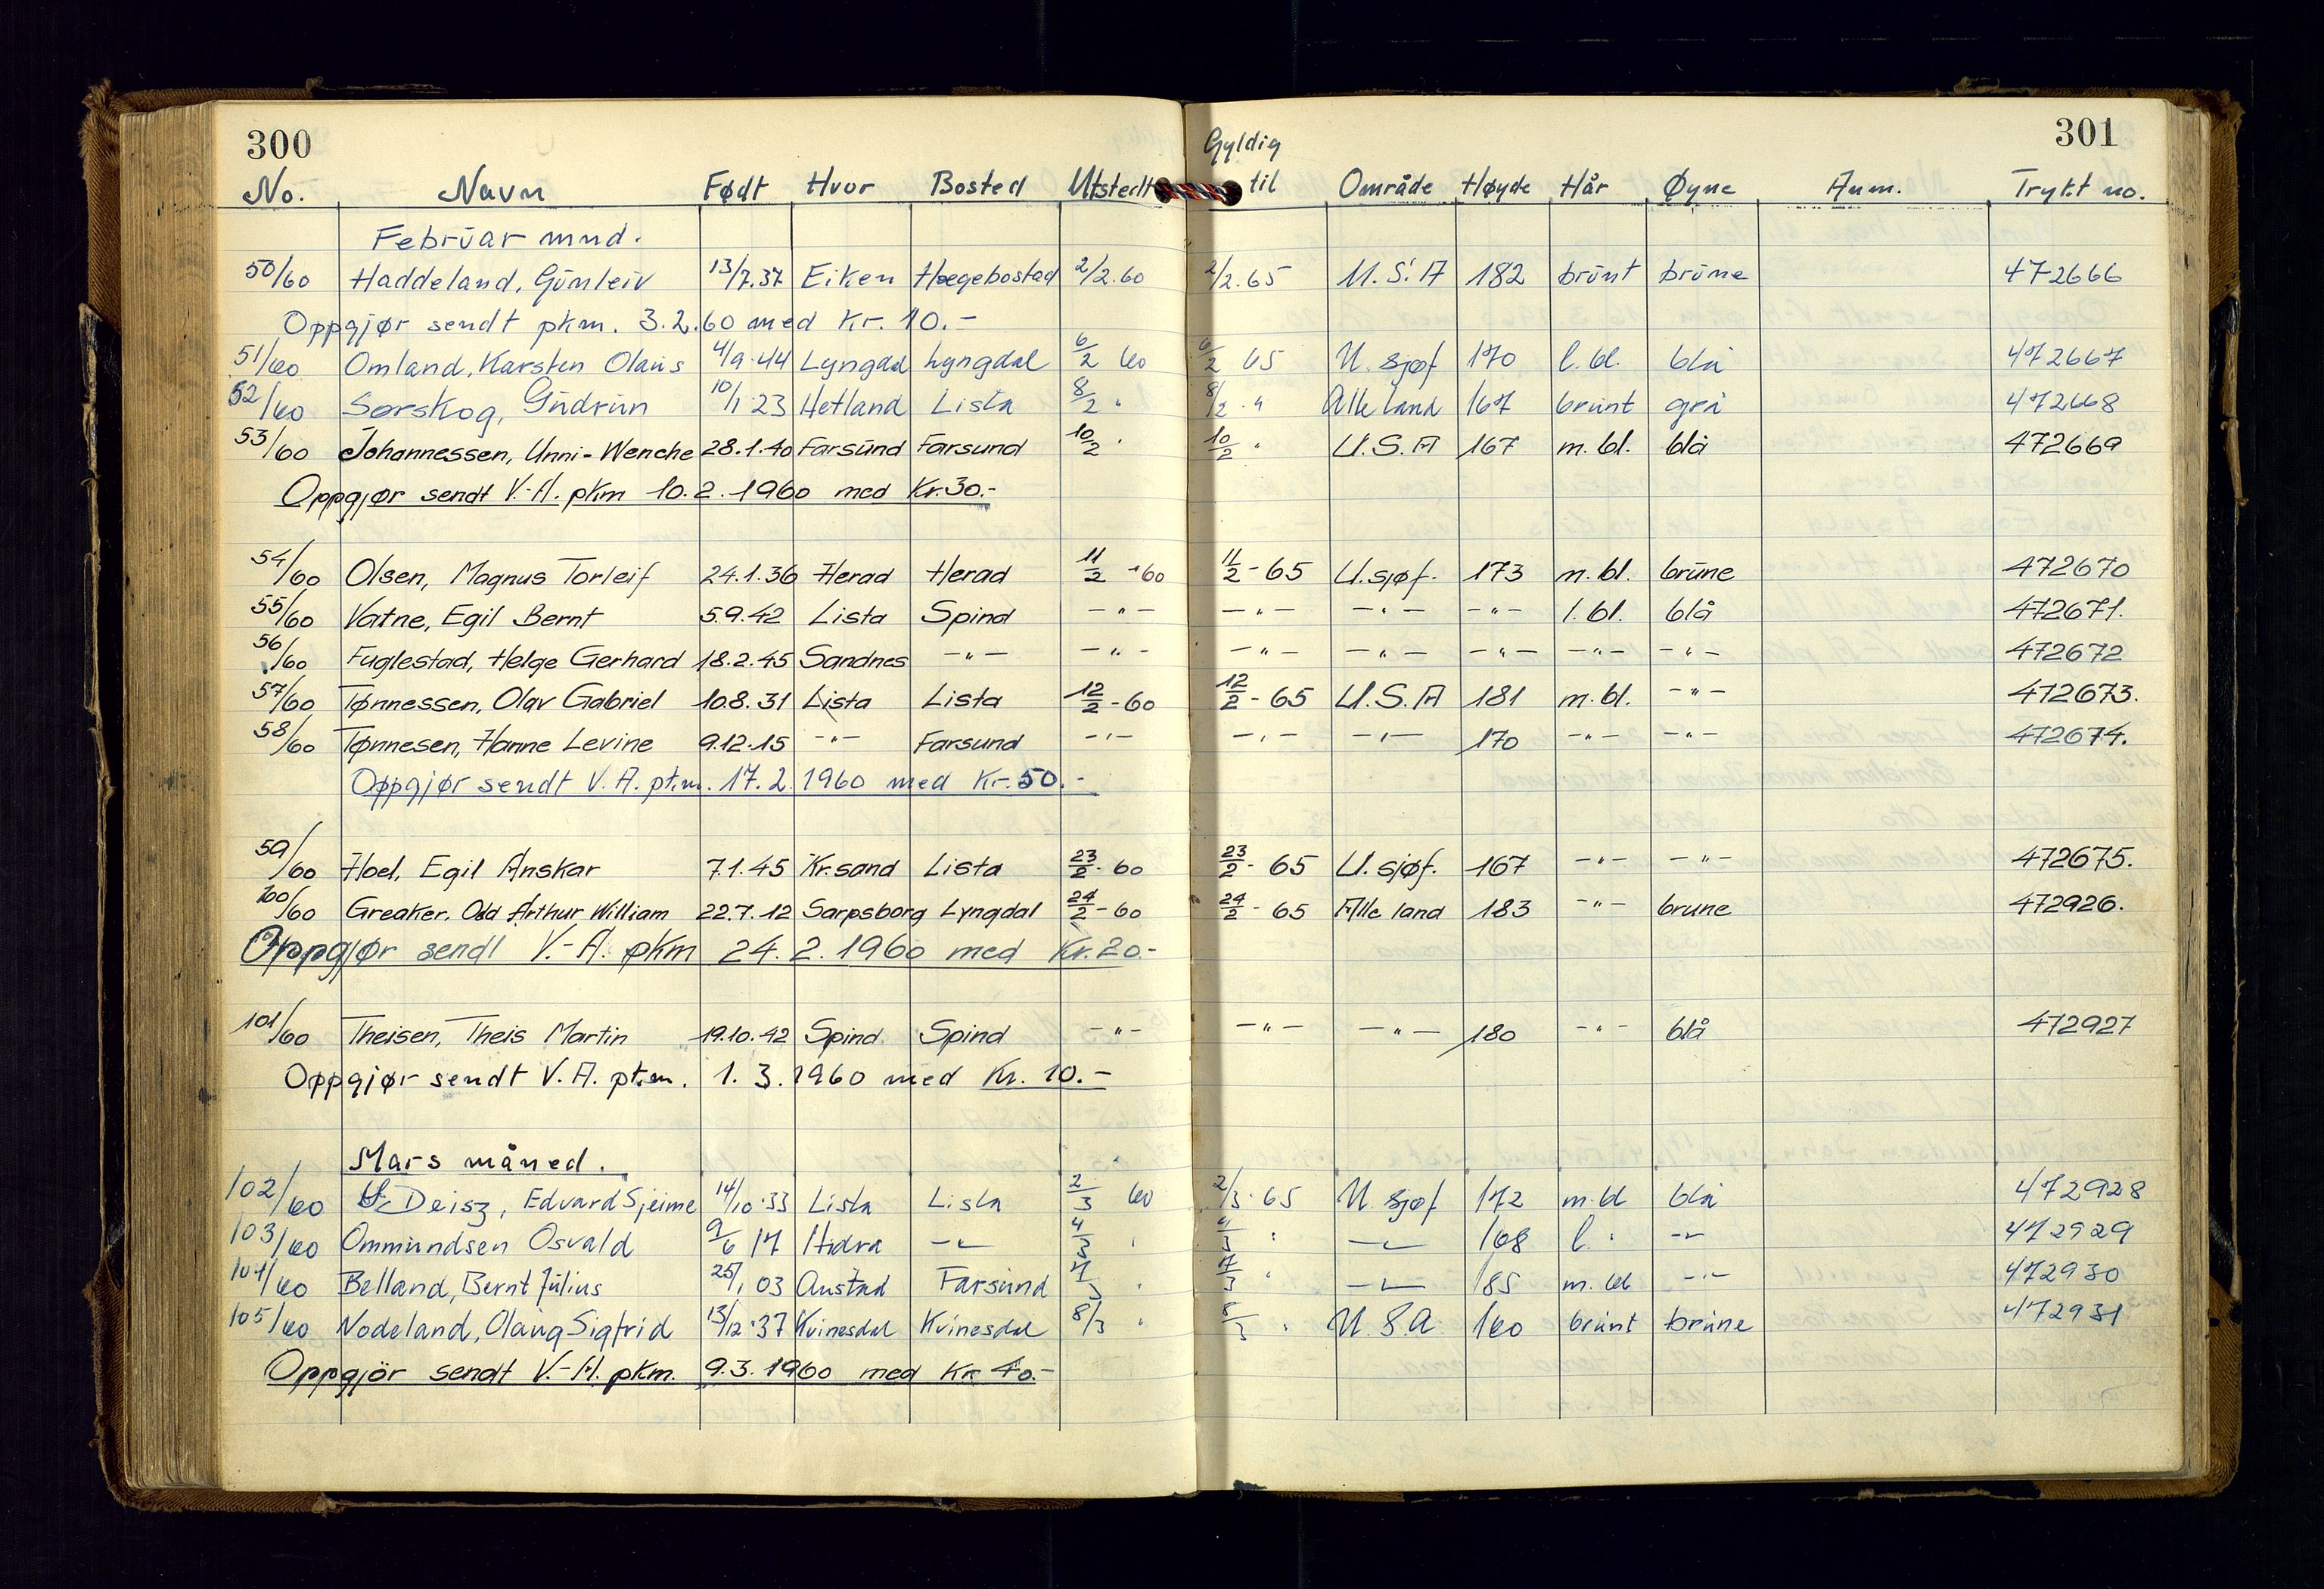 300
301
Gyldig
No. Navn Født Hvor Bosted Utstedt til Område Høyde Hår Øyne Anm. Trykt no.
Februar mnd.
50/60 Haddeland, Gunleiv 13/7.37 Eiken Hægebostad 2/2.60 2/2.65 U.S.A 182 brunt brune 472666
Oppgjør sendt pkm. 3.2.60 med kr. 10.-
51/60 Omland, Karsten Olaus 4/9.44 Lyngdal Lyngdal 6/2 60 6/2 65 U. sjøf 170 l. bl. blå 472667
52/60 Sørskog, Gudrun 10/1.23 Hetland Lista 8/2 " 8/2 " Alle land 167 brunt grå 472668
53/60 Johannessen, Unni-Wenche 28.1.40 Farsund Farsund 10/2 " 10/2 " U.S.A 167 m. bl. blå 472669
Oppgjør sendt V.-A. pkm 10.2.1960 med Kr.30.-
54/60 Olsen, Magnus Torleif 24.1.36 Herad Herad 11/2 - 60 11/2 - 65 U.sjøf. 173 m. bl. brune 472670
55/60 Vatne, Egil Bernt 5.9.42 Lista Spind -"- -"- -"- -"- l. bl. blå 472671.
56/60 Fuglestad, Helge Gerhard 18.2.45 Sandnes -"- -"- -"- -"- -"- -"- -"- 472672
57/60 Tønnessen, Olav Gabriel 10.8.31 Lista Lista 12/2 - 60 12/2 - 65 U.S.A 181 m. bl. -"- 472673.
58/60 Tønnesen, Hanne Levine 9.12.15 -"- Farsund -"- -"- -"- 170 -"- -"- 472674.
Oppgjør sendt V.A. ptm. 17.2.1960 med Kr.50.-
59/60 Hoel, Egil Anskar 7.1.45 Kr.sand Lista 23/2 - 60 23/2 - 65 U. sjøf. 167 -"- -"- 472675.
100/60 Greaker, Odd Arthur William 22.7.12 Sarpsborg Lyngdal 24/2 - 60 24/2 - 65 Alle land 183 -"- brune 472926.
Oppgjør sendt V.-A. pkm 24.2.1960 med Kr.20.-
101/60 Theisen, Theis Martin 19.10.42 Spind Spind -"- -"- -"- 180 -"- blå 472927
Oppgjør sendt V.A. ptm. 1.3.1960 med Kr. 10.-
Mars måned.
102/60 Deisz, Edvard Sjeime 14/10.33 Lista Lista 2/3 60 2/3.65 U. sjøf 172 m. bl blå 472928
103/60 Ommundsen Osvald 9/6 17 Hidra -"- 4/3 " 4/3 " -"- 168 l. " -"- 472929
104/60 Belland, Bernt Julius 25/1 03 Austad Farsund 7/3 " 7/3 " -"- 185 m. bl -"- 472930
105/60 Nodeland, Olaug Sigfrid 13/12.37 Kvinesdal Kvinesdal 8/3 " 8/3 " U.S.A 160 brunt brune 472931
Oppgjør sendt V.-A. pkm. 9.3.1960 med Kr 40.-